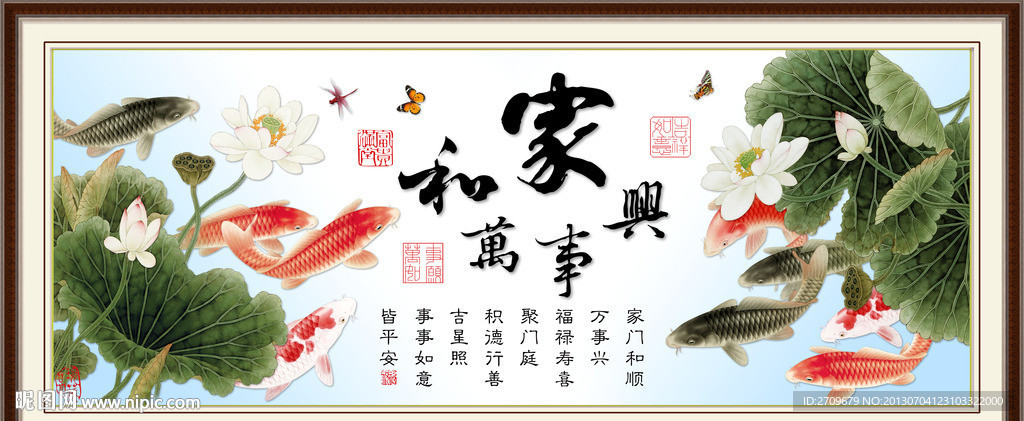 家和萬事興
富貴滿堂
吉祥如意
萬事如願
家门和顺
万事兴
福禄寿喜
聚门庭
积德行善
吉星照
事事如意
皆平安
昵图网 www.nipic.com
ID:2709679 NO:20130704123103322000